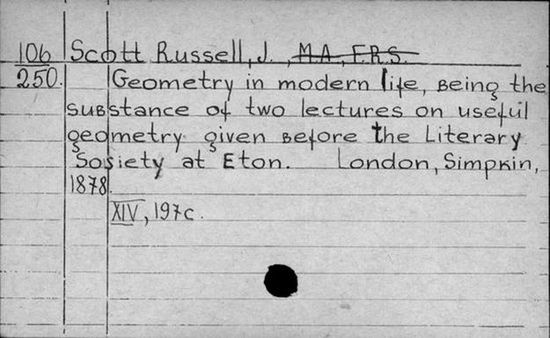 106 Scott Russell, J., M.A., F.R.S.
250. Geometry in modern life, being the
substance of two lectures on useful
geometry given before the Literary
Sosiety at Eton. London, Simpkin,
1878.
XIV, 197c.